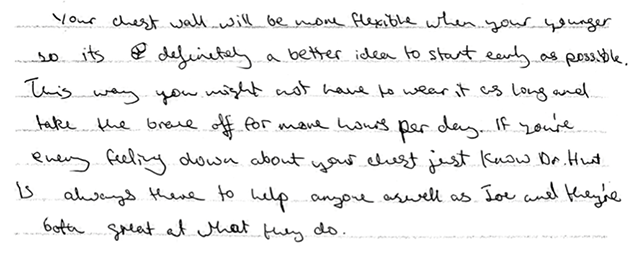 Your chest wall will be more flexible when your younger
so its definitely a better idea to start early as possible.
This way you might not have to wear it as long and
take the brace off for more hours per day. If you're
every feeling down about your chest just know Dr. Hunt
is always there to help anyone aswell as Joe and they're
both great at what they do.